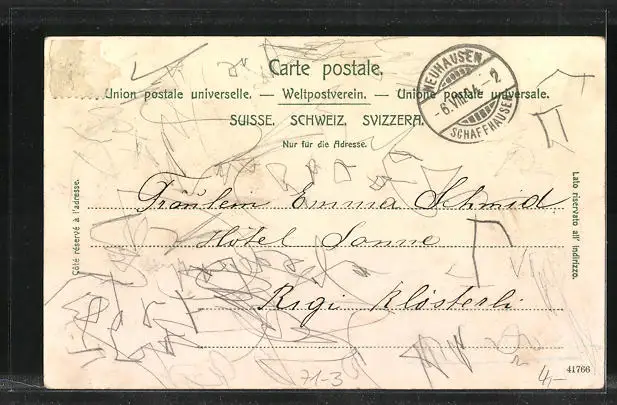 Carte postale.
Union postale universelle. — Weltpostverein. — Unione postale universale.
SUISSE. SCHWEIZ. SVIZZERA.
Nur für die Adresse.
NEUHAUSEN
2
SCHAFFHAUSEN
Côté réservé à l'adresse.
Lato riservato all' indirizzo.
Fräulein Emma Schmid.
Hôtel Sonne
Rigi Klösterli
71-3
4,-
41766